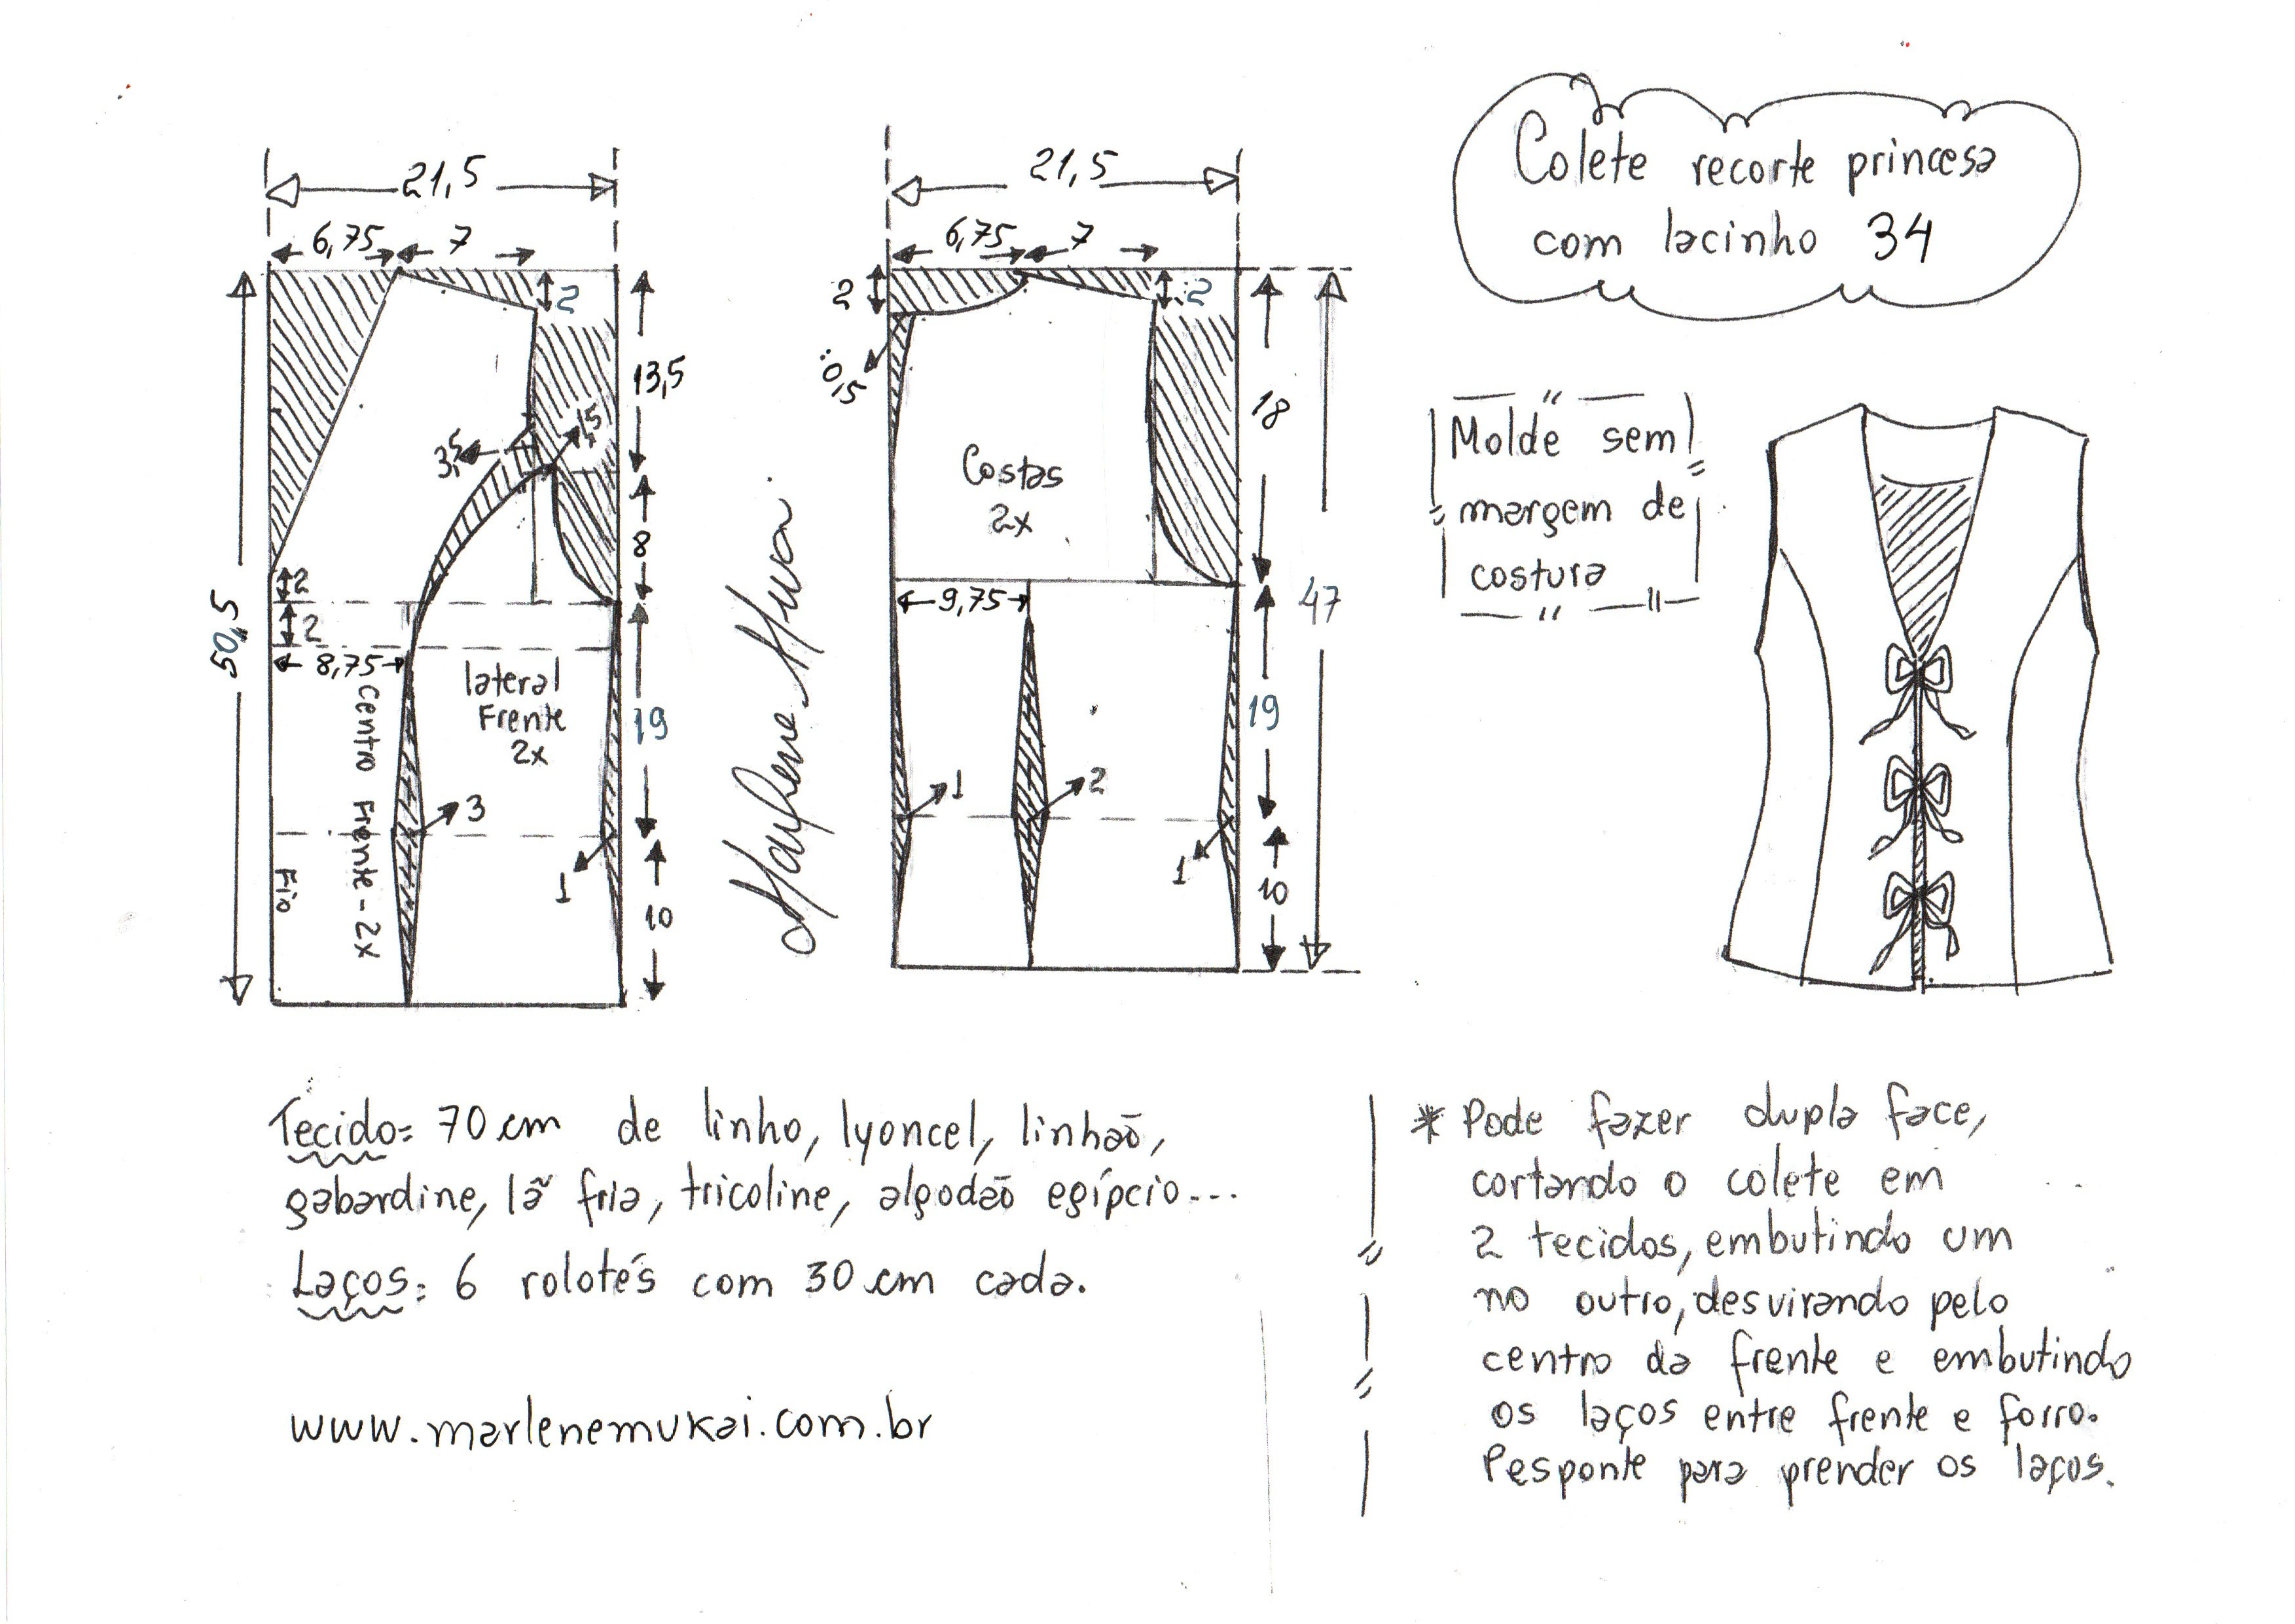 Colete recorte princesa
com lacinho 34
21,5
6,75
7
2
13,5
1,5
3,5
8
2
2
8,75
50,5
lateral
Frente
2x
Centro Frente - 2x
Fio
19
3
1
10
21,5
6,75
7
2
2
0,5
18
Costas
2x
9,75
47
19
1
2
1
10
Molde sem
margem de
costura
Tecido= 70 cm de linho, lyoncel, linhão,
gabardine, lã fria, tricoline, algodão egípcio...
Laços: 6 rolotés com 30 cm cada.
www.marlenemukai.com.br
* Pode fazer dupla face,
cortando o colete em
2 tecidos, embutindo um
no outro, desvirando pelo
centro da frente e embutindo
os laços entre frente e forro.
Pesponte para prender os laços.